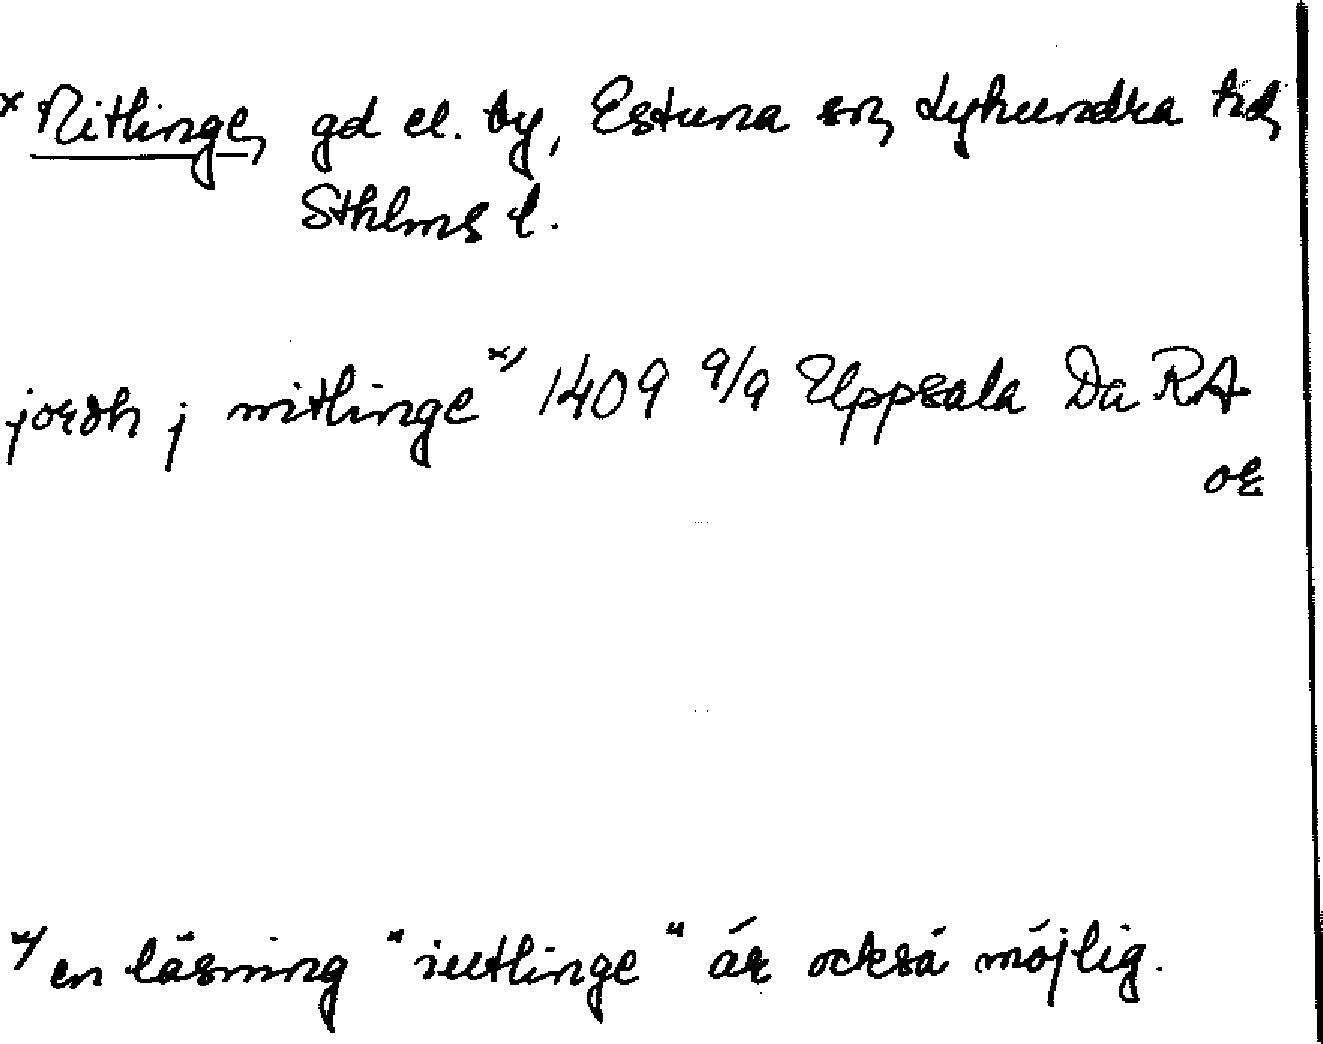 * Nitlinge, gd el. by, Estuna sn, Lyhundra hd,
Sthlms l.
jordh j nitlinge x) 1409 9/9 Uppsala Da RA
or
x) en läsning "iutlinge" är också möjlig.